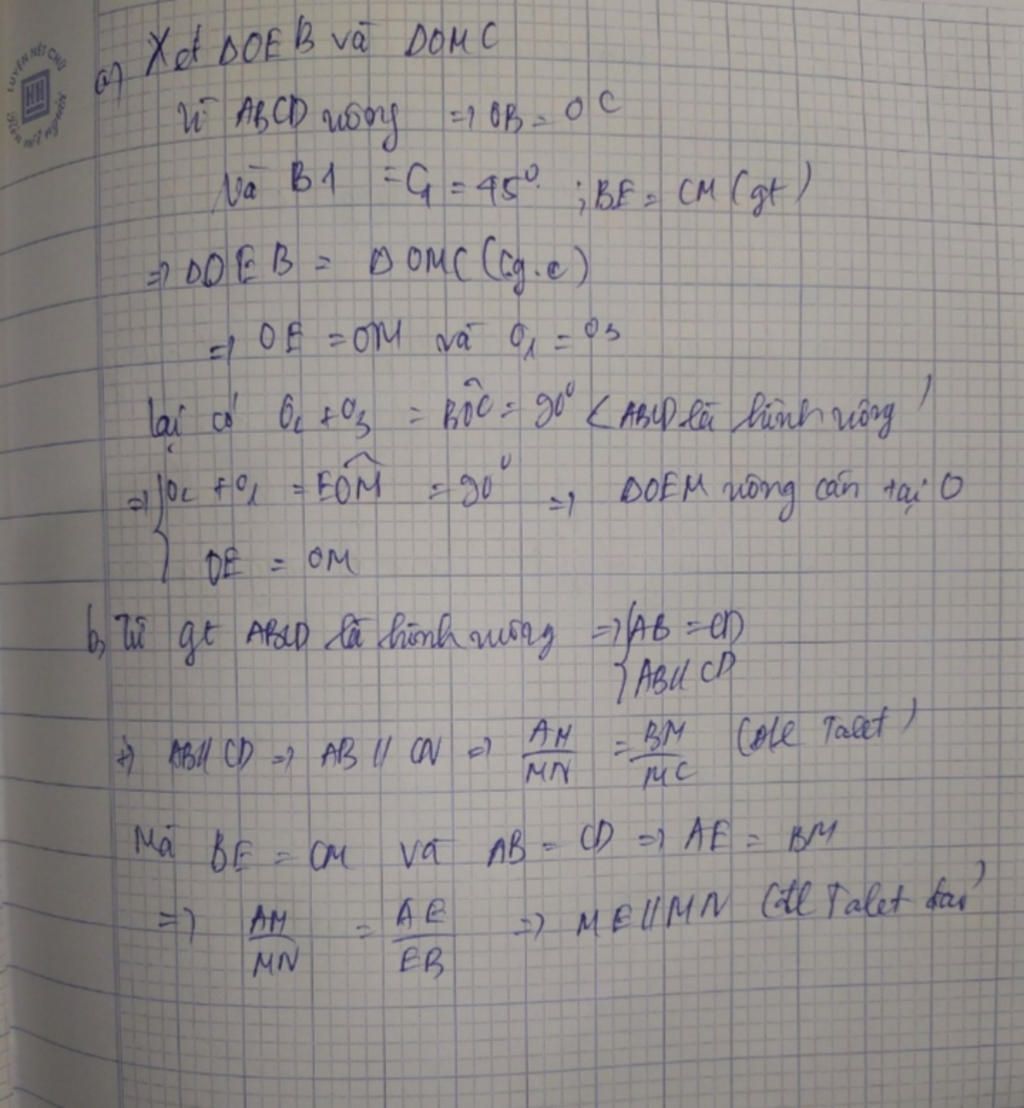 LUYỆN NÉT CHỮ
Rèn nết người
a) Xét ΔOEB và ΔOMC
Vì ABCD vuông => OB = OC
Và B1 = C1 = 45°; BE = CM (gt)
=> ΔOEB = ΔOMC (cg.c)
=> OE = OM và O1 = O3
lại có O2 + O3 = BÔC = 90° < ABCD là hình vuông)
=> { O2 + O1 = EÔM = 90° => ΔOEM vuông cân tại O
OE = OM
b, Từ gt ABCD là hình vuông => { AB = CD
AB // CD
+) AB // CD => AB // CN => AM/MN = BM/MC (ĐL Talet)
Mà BE = CM và AB = CD => AE = BM
=> AM/MN = AE/EB => ME // MN (ĐL Talet đảo)